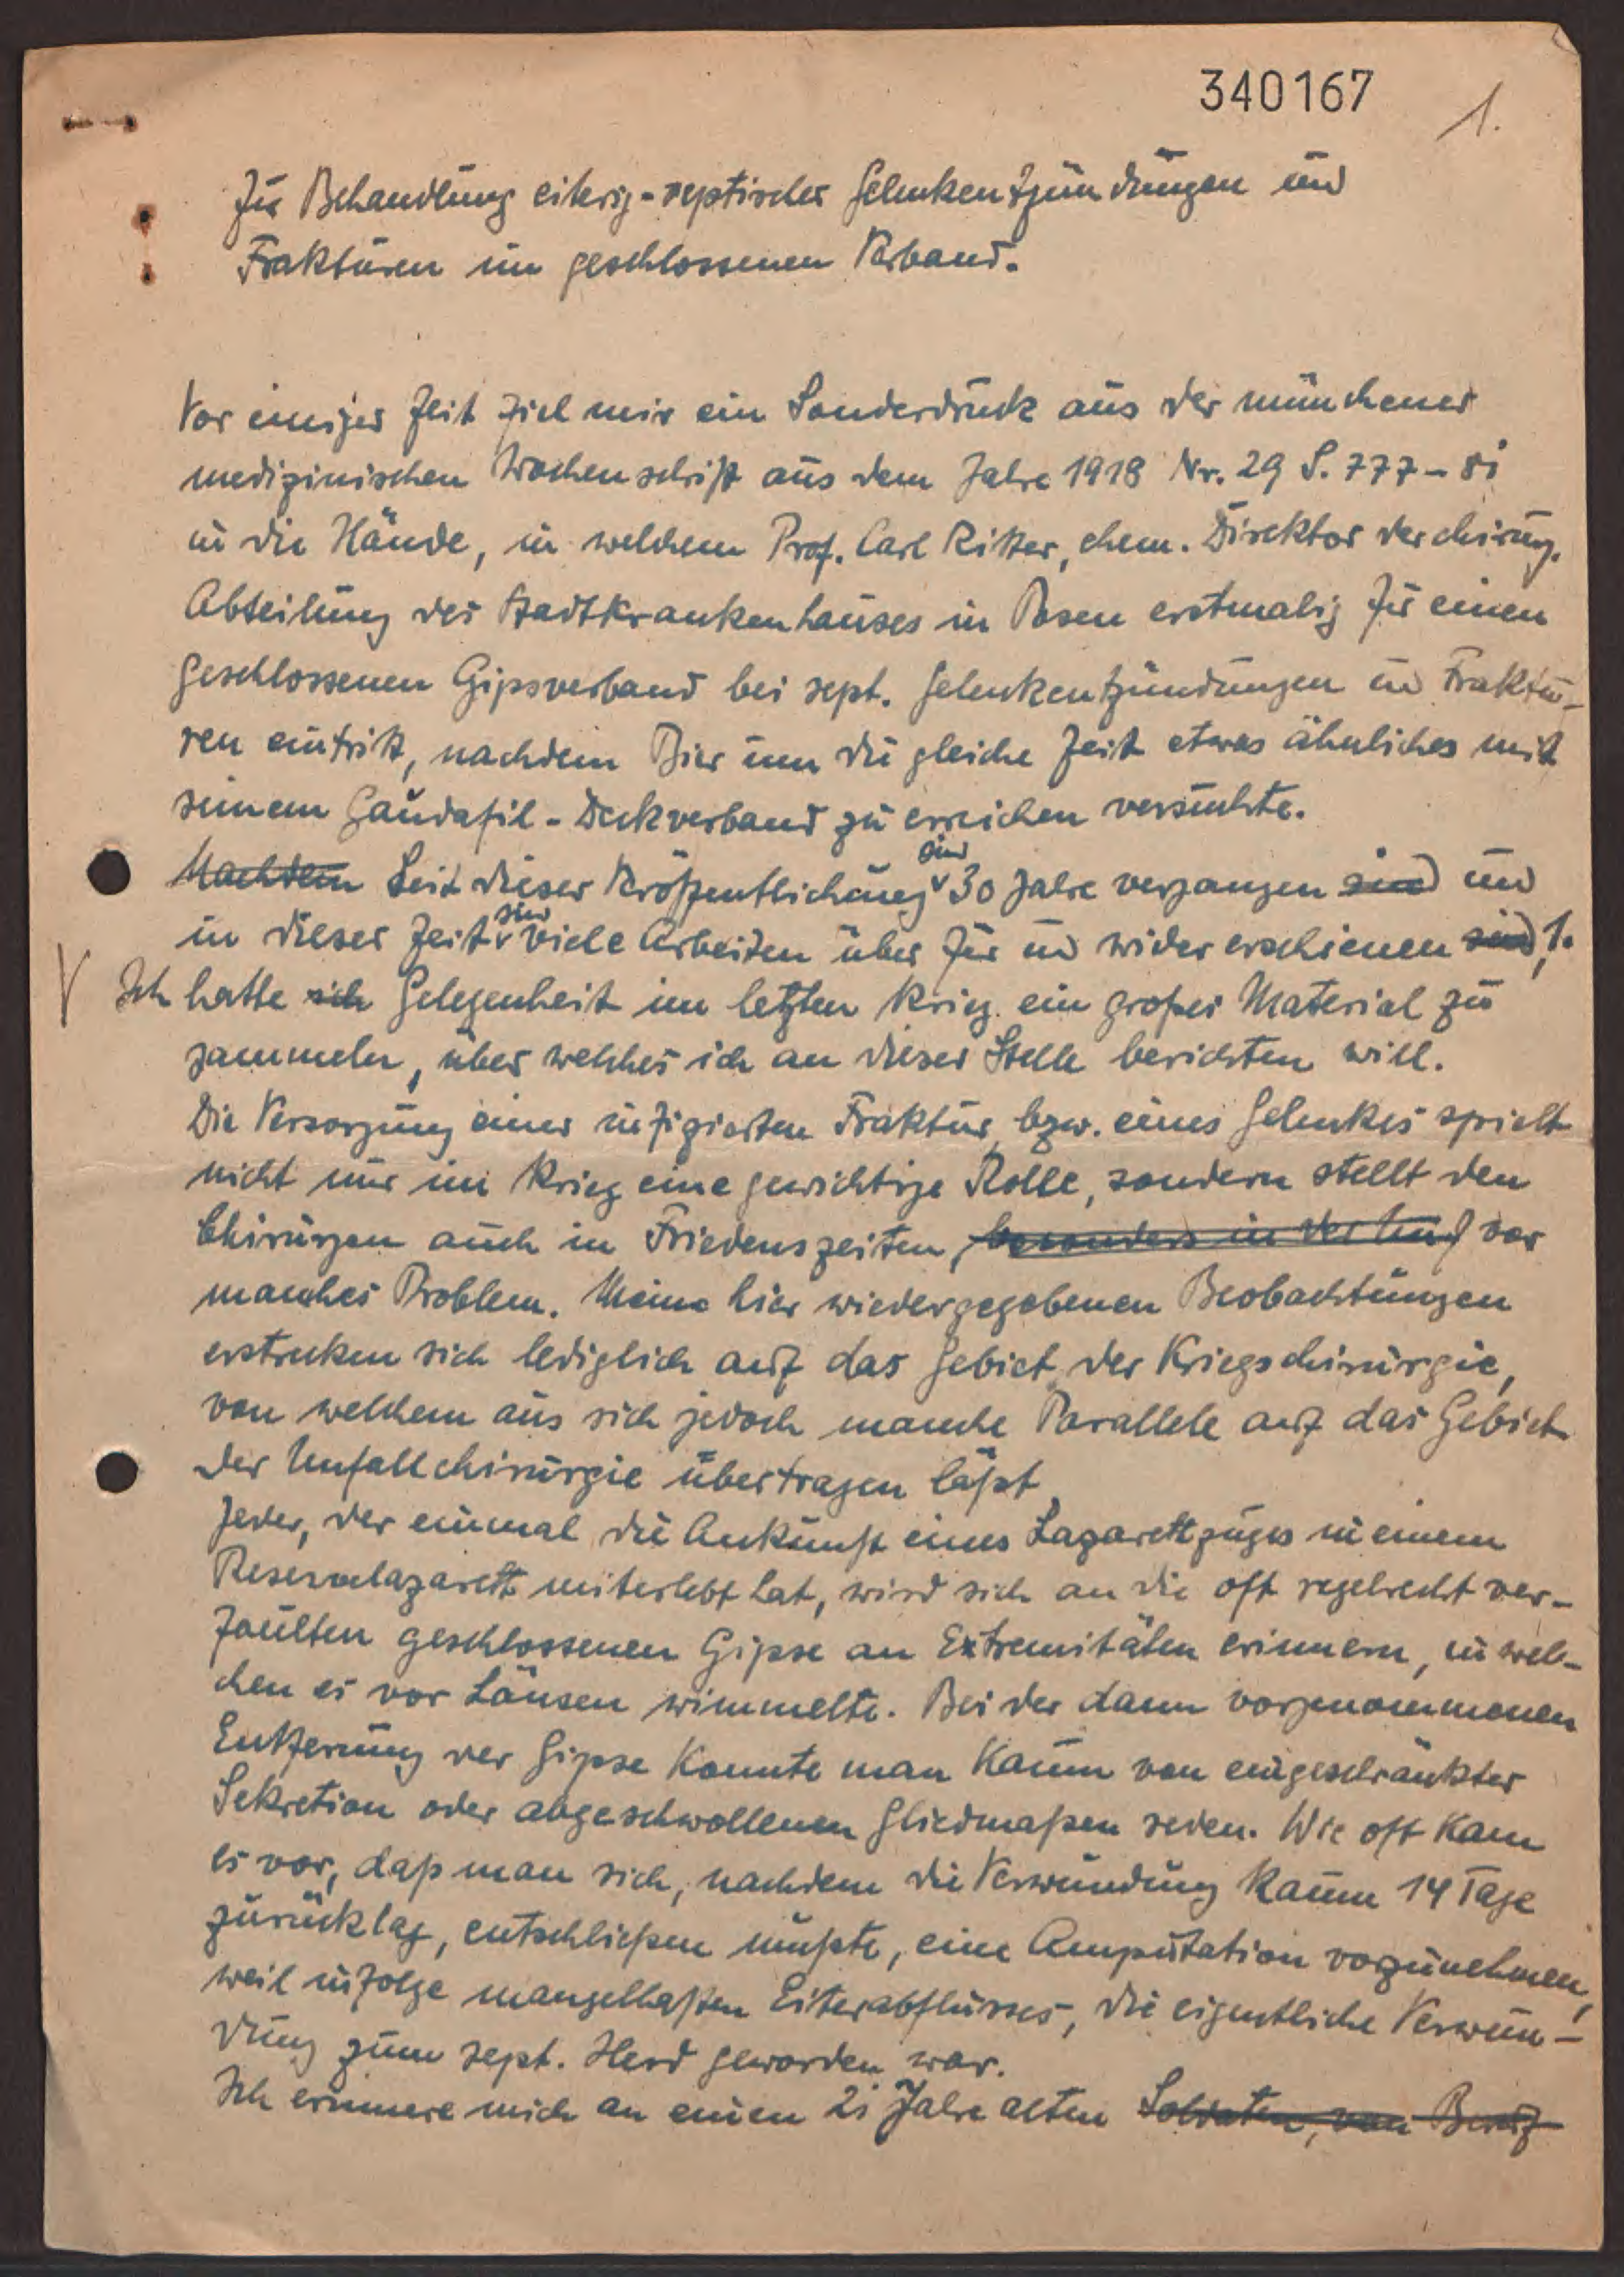 340167
1.
Zur Behandlung eiterig-septischer Gelenkentzündungen und
Frakturen im geschlossenen Verband.
Vor einiger Zeit fiel mir ein Sonderdruck aus der münchener
medizinischen Wochenschrift aus dem Jahre 1918 Nr. 29 S. 777-81
in die Hände, in welchem Prof. Carl Ritter, ehem. Direktor der chirurg.
Abteilung des Stadtkrankenhauses in Posen erstmalig für einen
geschlossenen Gipsverband bei sept. Gelenkentzündungen und Fraktu-
ren eintritt, nachdem Bier um die gleiche Zeit etwas ähnliches mit
seinem Gaudafil-Deckverband zu erreichen versuchte.
Nachdem Seit dieser Veröffentlichung sind 30 Jahre vergangen sind und
in dieser Zeit sind viele Arbeiten über für und wider erschienen sind,
Ich hatte ich Gelegenheit im letzten Krieg ein großes Material zu
sammeln, über welches ich an dieser Stelle berichten will.
Die Versorgung einer infizierten Fraktur, bzw. eines Gelenkes spielt
nicht nur im Krieg eine gewichtige Rolle, sondern stellt den
Chirurgen auch in Friedenszeiten, besonders in der Unf vor
manches Problem. Meine hier wiedergegebenen Beobachtungen
erstrecken sich lediglich auf das Gebiet der Kriegschirurgie,
von welchem aus sich jedoch manche Parallele auf das Gebiet
der Unfallchirurgie übertragen läßt.
Jeder, der einmal die Ankunft eines Lazarettzuges in einem
Reservelazarett miterlebt hat, wird sich an die oft regelrecht ver-
faulten geschlossenen Gipse an Extremitäten erinnern, in wel-
chen es vor Läusen wimmelte. Bei der dann vorgenommenen
Entfernung der Gipse konnte man kaum von eingeschränkter
Sekretion oder abgeschwollenen Gliedmaßen reden. Wie oft kam
es vor, daß man sich, nachdem die Verwundung kaum 14 Tage
zurücklag, entschließen mußte, eine Amputation vorzunehmen,
weil infolge mangelhaften Eiterabflusses, die eigentliche Verwun-
dung zum sept. Herd geworden war.
Ich erinnere mich an einen 21 Jahre alten Soldaten, von Beruf